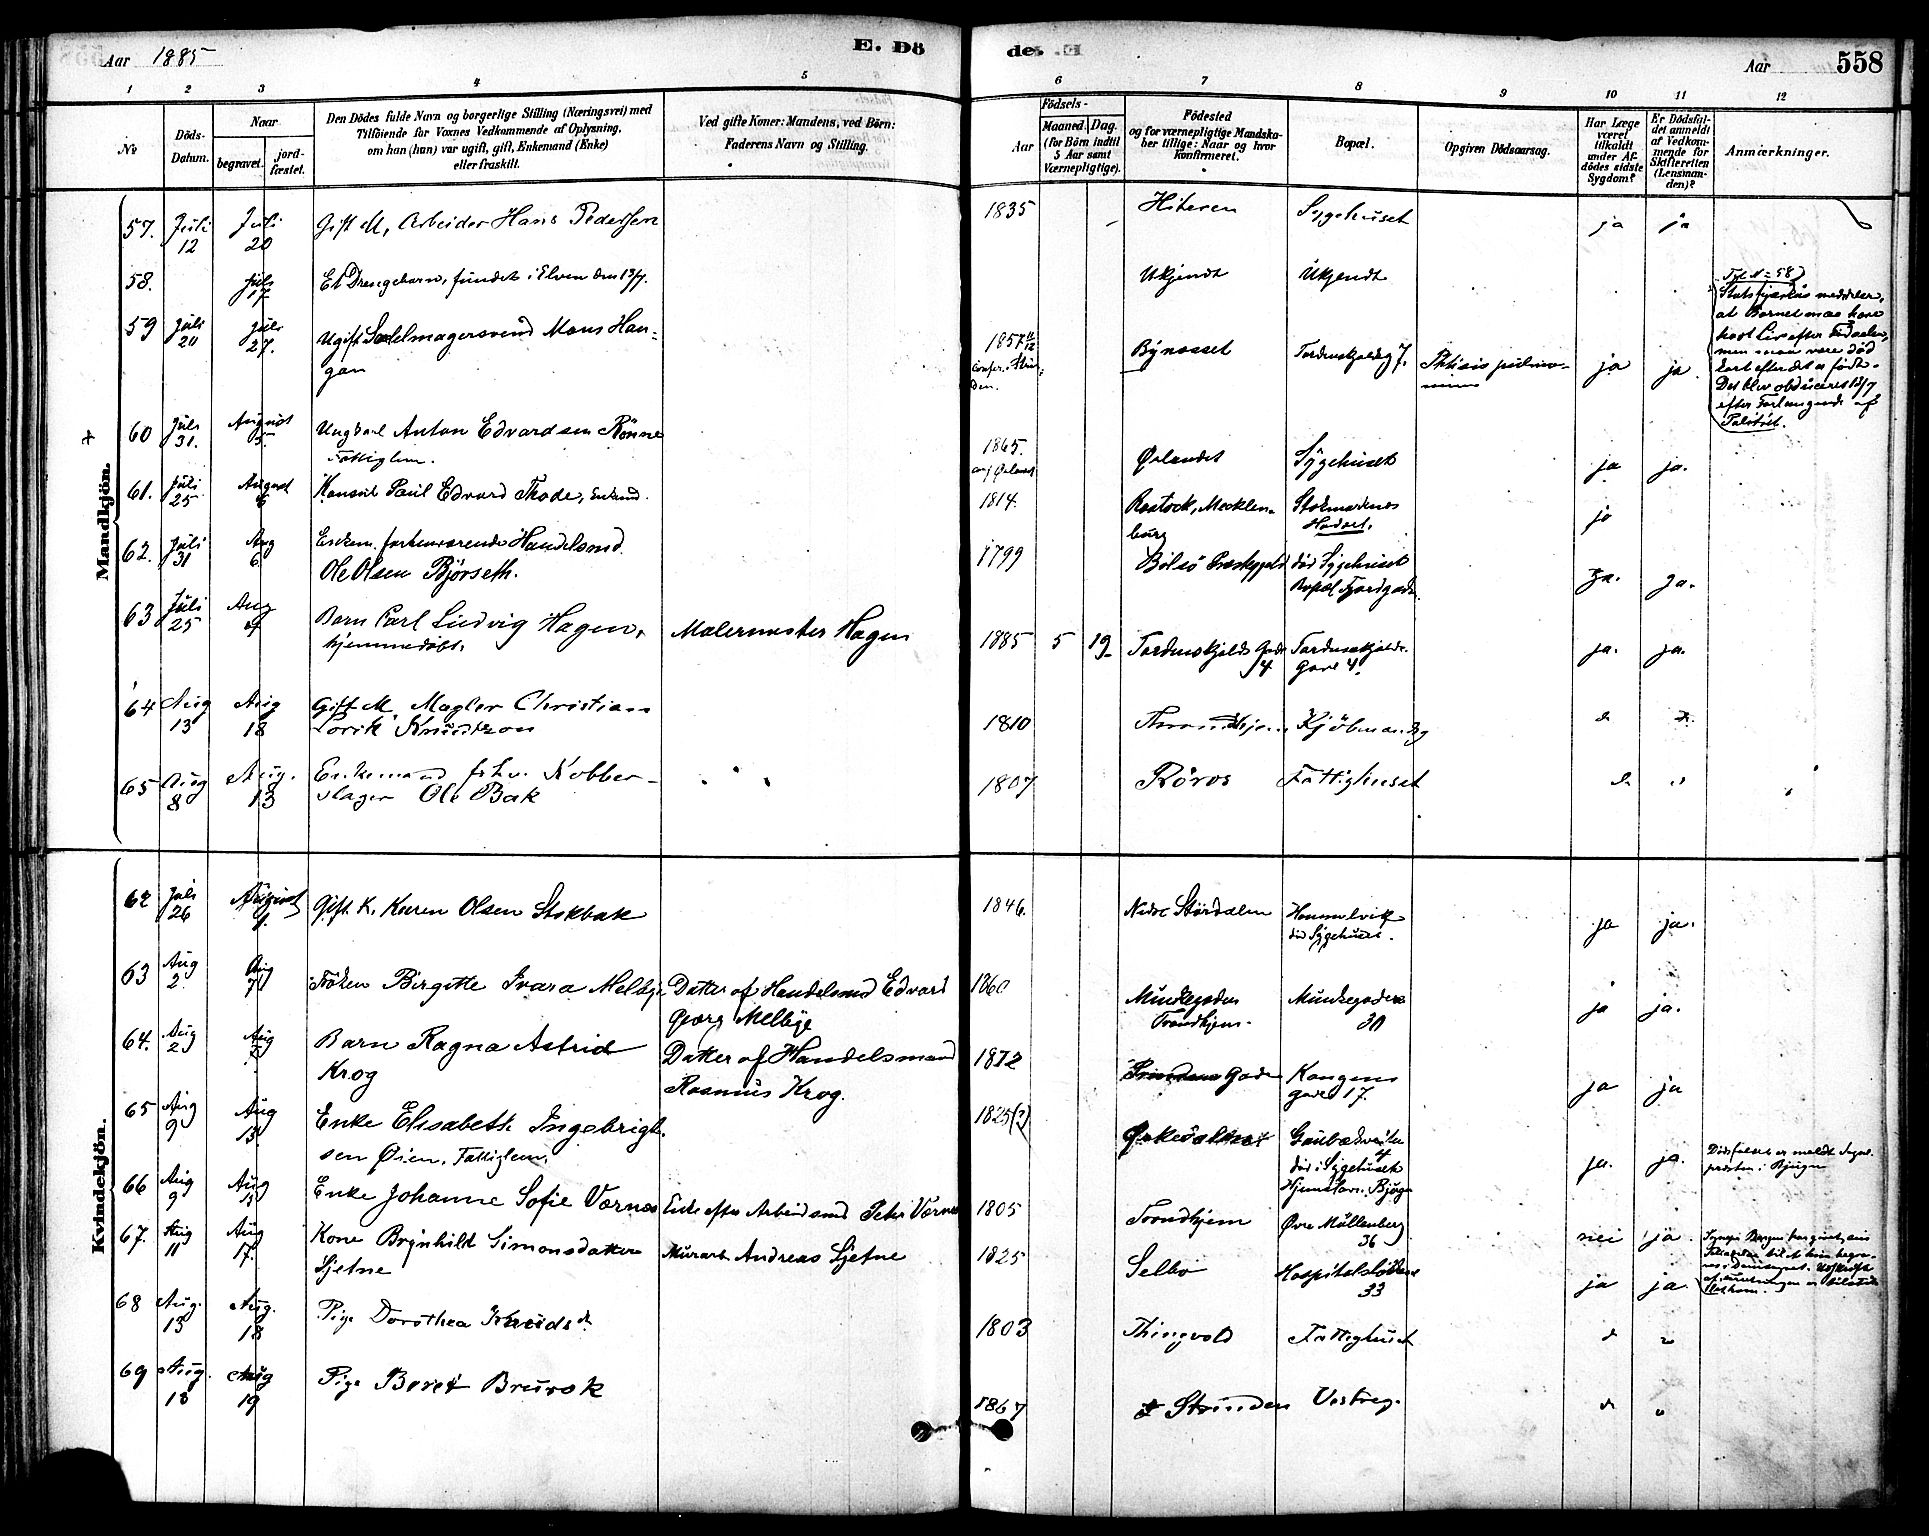 Aar 1885
E. Dö
de. E.
Aar
558
1 2 3 4 5 6 7 8 9 10 11 12
No
Döds-
Datum.
Naar
begravet.
jord-
fæstet.
Den Dödes fulde Navn og borgerlige Stilling (Næringsvei) med
Tilföiende for Voxnes Vedkommende af Oplysning,
om han (hun) var ugift, gift, Enkemand (Enke)
eller fraskilt.
Ved gifte Koner: Mandens, ved Börn:
Faderens Navn og Stilling.
Födsels-
Aar
Maaned. Dag.
(for Börn indtil
5 Aar samt
Værnepligtige).
Födested
og for værnepligtige Mandska-
ber tillige: Naar og hvor
konfirmeret.
Bopæl.
Opgiven Dödsaarsag.
Har Læge
været
tilkaldt
under Af-
dödes sidste
Sygdom?
Er Dödsfal-
det anmeldt
af Vedkom-
mende for
Skifteretten
(Lensman-
den)?
Anmærkninger.
Mandkjön.
57. Juli 12 Juli 20 Gift M, Arbeider Hans Pedersen 1835 Hiteren Sygehuset ja ja
58. Juli 17 Et Drengebarn, fundet i Elven den 13/7. Ukjendt Ukjendt
Til N= 58)
Statsfysikus meddeler,
at Barnet maa have
havt Liv efter Fødselen,
men maa være død
kort efter det er født.
Det blev obduceret 13/7
efter Forlangende af
Politiet.
59 Juli 20 Juli 27. Ugift Sadelmagersvend Mons Han-
gan 1857 Bynesset Tordenskjoldsg 7. Phtisis pulmo-
num ja ja
60 Juli 31. August 5. Ungkarl Anton Edvardsen Rönne
Fattiglem. 1865. Ørlandet Sygehuset ja ja.
61. Juli 25 August 6 Konsul Paul Edvard Thode, Enkemd. 1814. Rostock, Mecklen-
burg Stokmarknes
Hadsel. ja
62. Juli 31 Aug 6 Enkem. forhenværende Handelsmd.
Ole Olsen Björseth. 1799 Bolsö Præstegjeld död Sygehuset
Bopæl Fjordgaden ja. ja.
63 Juli 25 Aug Barn Carl Ludvig Hagen,
hjemmedøbt. Malermester Hagen 1885 5 19 Tordenskjolds Gade
4 Tordenskjolds
Gade 4. ja. ja.
64 Aug 13 Aug 18 Gift M. Mægler Christian
Lorik Knudtzon 1810 Throndhjem Kjöbmandsg
65 Aug 8 Aug. 13 Enkemand fhv. Kobber-
slager Ole Bak 1807 Röros Fattighuset
Kvindekjön.
62 Juli 26 August 1. Gift K. Karen Olsen Stokbak 1846. Nedre Stördalen Hommelvik
död Sygehuset. ja ja.
63 Aug 2. Aug 7 Fröken Birgitte Ivara Melbye Datter af Handelsmd Edvard
Georg Melbye 1860 Munkegaden
Trondhjem. Munkegaden
30 ja ja.
64. Aug 2 Aug 7 Barn Ragna Astrid
Krog Datter af Handelsmand
Rasmus Krog. 1872 Gade Kongens
Gade 17. ja ja
65 Aug 9 Aug 13 Enke Elisabeth Ingebrigt-
sen Öien. Fattiglem. 1825(?) Orkedalen
4
död i Sygehuset
ja. ja. Dödsfaldet er meldt Sogne-
præsten i Bjugn
66 Aug 9 Aug Enke Johanne Sofie Værnes Enke efter Arbeidsmd Peter Værnes 1805 Trondhjem Øvre Möllenberg
36 nei ja.
67. Aug 11 Aug 17. Kone Brynhild Simonsdatter
Sjetne Murarb. Andreas Sjetne 1825 Selbo Hospitalslökken
33 ja ja
68 Aug. 13 Aug. 18 Pige Dorothea Knudsd. 1803 Thingvold Fattighuset
69 Aug. 13 Aug 19 Pige Beret Brurok 1867 Strinden Vestreg.